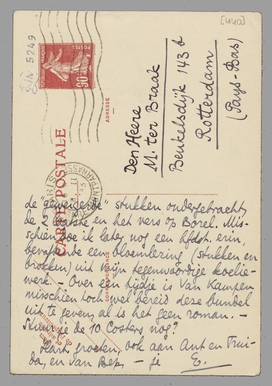 [440]
E/N 5249
30c
ADRESSE
CARTE POSTALE
Den Heere
M. ter Braak
Beukelsdijk 143 b
Rotterdam
(Pays-Bas)
de "geweigerde" stukken ondergebracht,
de 2 laatste en het vers op Borel. Mis-
schien doe ik later nog een hfdst. erin,
bevattende een bloemlezing (stukken en
brokken) uit mijn tegenwoordige koelie-
werk. - Over een tijdje is Van Kampen
misschien toch wel bereid deze bundel
uit te geven, al is het geen roman. -
Stuur je de 10 Costers nog?
Hart. groeten, ook aan Ant en Trui-
da, en van Bep, - je E.